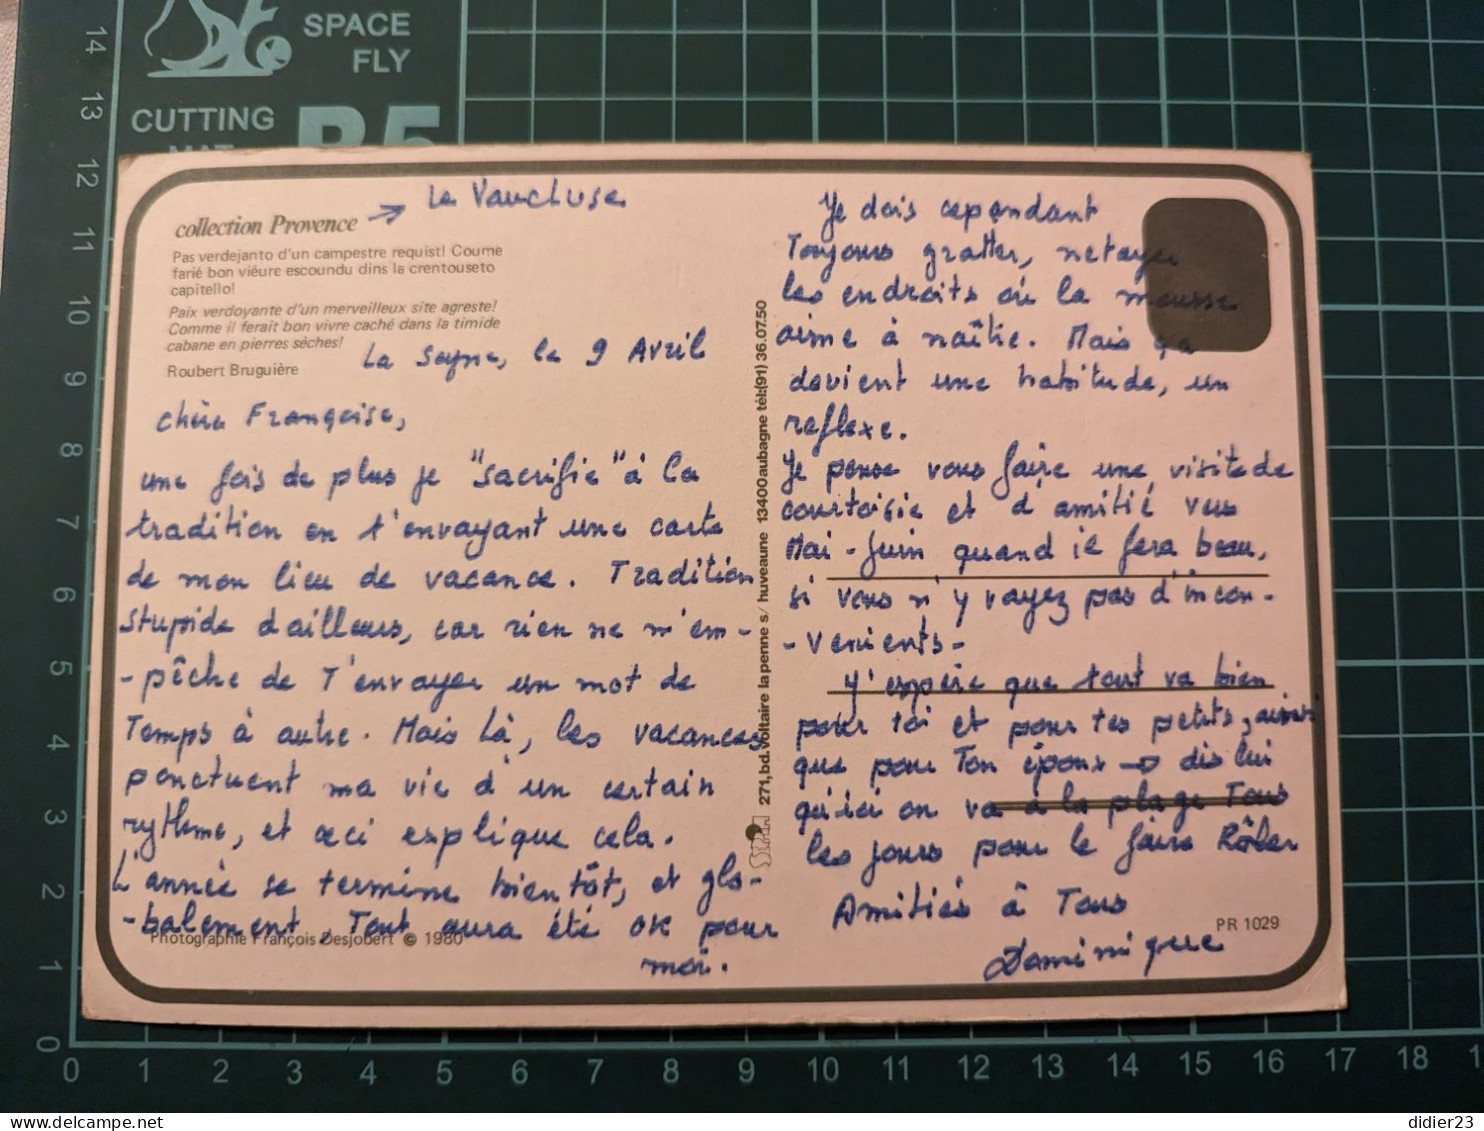 SPACE
FLY
CUTTING
MAT
B5
collection Provence → Le Vaucluse
Pas verdejanto d'un campestre requist! Coume
farié bon viéure escoundu dins la crentouseto
capitello!
Paix verdoyante d'un merveilleux site agreste!
Comme il ferait bon vivre caché dans la timide
cabane en pierres sèches!
Roubert Bruguière
La Seyne, le 9 Avril
chère Françoise,
une fois de plus je "sacrifie" à la
tradition en t'envoyant une carte
de mon lieu de vacance. Tradition
stupide d'ailleurs, car rien ne m'em-
-pêche de t'envoyer un mot de
Temps à autre. Mais là, les vacances
ponctuent ma vie d'un certain
rythme, et ceci explique cela.
L'année se termine bientôt, et glo-
-balement, Tout aura été OK pour
moi.
Photographie François Desjobert © 1980
271, bd. voltaire la penne s/ huveaune 13400 aubagne tél:(91) 36.07.50
Je dois cependant
Toujours gratter, netoyer
les endroits où la mousse
aime à naître. Mais ça
devient une habitude, un
reflexe.
Je pense vous faire une visite de
courtoisie et d'amitié vers
Mai-Juin quand il fera beau,
si vous n'y voyez pas d'incon-
-venients-
J'espère que tout va bien
pour toi et pour tes petits, ainsi
que pour Ton époux → dis lui
qu'ici on va à la plage Tous
les jours pour le faire Râler
Amitiés à Tous
Dominique
PR 1029
14
13
12
11
10
9
8
7
6
5
4
3
2
1
0
0 1 2 3 4 5 6 7 8 9 10 11 12 13 14 15 16 17 18
delcampe.net
didier23